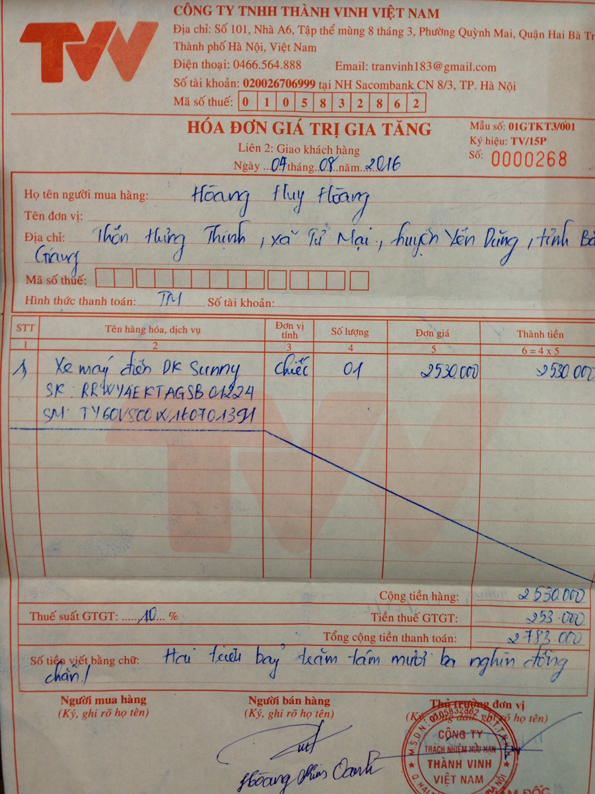 TVV
CÔNG TY TNHH THÀNH VINH VIỆT NAM
Địa chỉ: Số 101, Nhà A6, Tập thể mùng 8 tháng 3, Phường Quỳnh Mai, Quận Hai Bà Tr
Thành phố Hà Nội, Việt Nam
Điện thoại: 0466.564.888 Email: tranvinh183@gmail.com
Số tài khoản: 020026706999 tại NH Sacombank CN 8/3, TP. Hà Nội
Mã số thuế: 0 1 0 5 8 3 2 8 6 2
HÓA ĐƠN GIÁ TRỊ GIA TĂNG
Mẫu số: 01GTKT3/001
Liên 2: Giao khách hàng
Ký hiệu: TV/15P
Ngày ...09.tháng..08..năm..2016
Số: 0000268
Họ tên người mua hàng: Hoàng Huy Hoàng
Tên đơn vị:
Địa chỉ: Thôn Hưng Thịnh, xã Tư Mại, huyện Yên Dũng, tỉnh Bắ
Giang
Mã số thuế:
Hình thức thanh toán: TM Số tài khoản:
STT Tên hàng hóa, dịch vụ Đơn vị tính Số lượng Đơn giá Thành tiền
1 2 3 4 5 6 = 4 x 5
1 Xe máy điện DK Sunny chiếc 01 2530.000 2530.000
SK: RRWY4EKTAGSB01224
SM: TY60V500W160701391
TVV
Cộng tiền hàng: 2 530.000
Thuế suất GTGT: ......10... % Tiền thuế GTGT: 253.000
Tổng cộng tiền thanh toán: 2 783.000
Số tiền viết bằng chữ: Hai triệu bảy trăm tám mươi ba nghìn đồng
chẵn./
Người mua hàng Người bán hàng Thủ trưởng đơn vị
(Ký, ghi rõ họ tên) (Ký, ghi rõ họ tên) ghi rõ họ tên)
M.S.D.N: 0105832862
CÔNG TY
TRÁCH NHIỆM HỮU HẠN
THÀNH VINH
VIỆT NAM
Hoàng Kim Oanh
ĐỐC